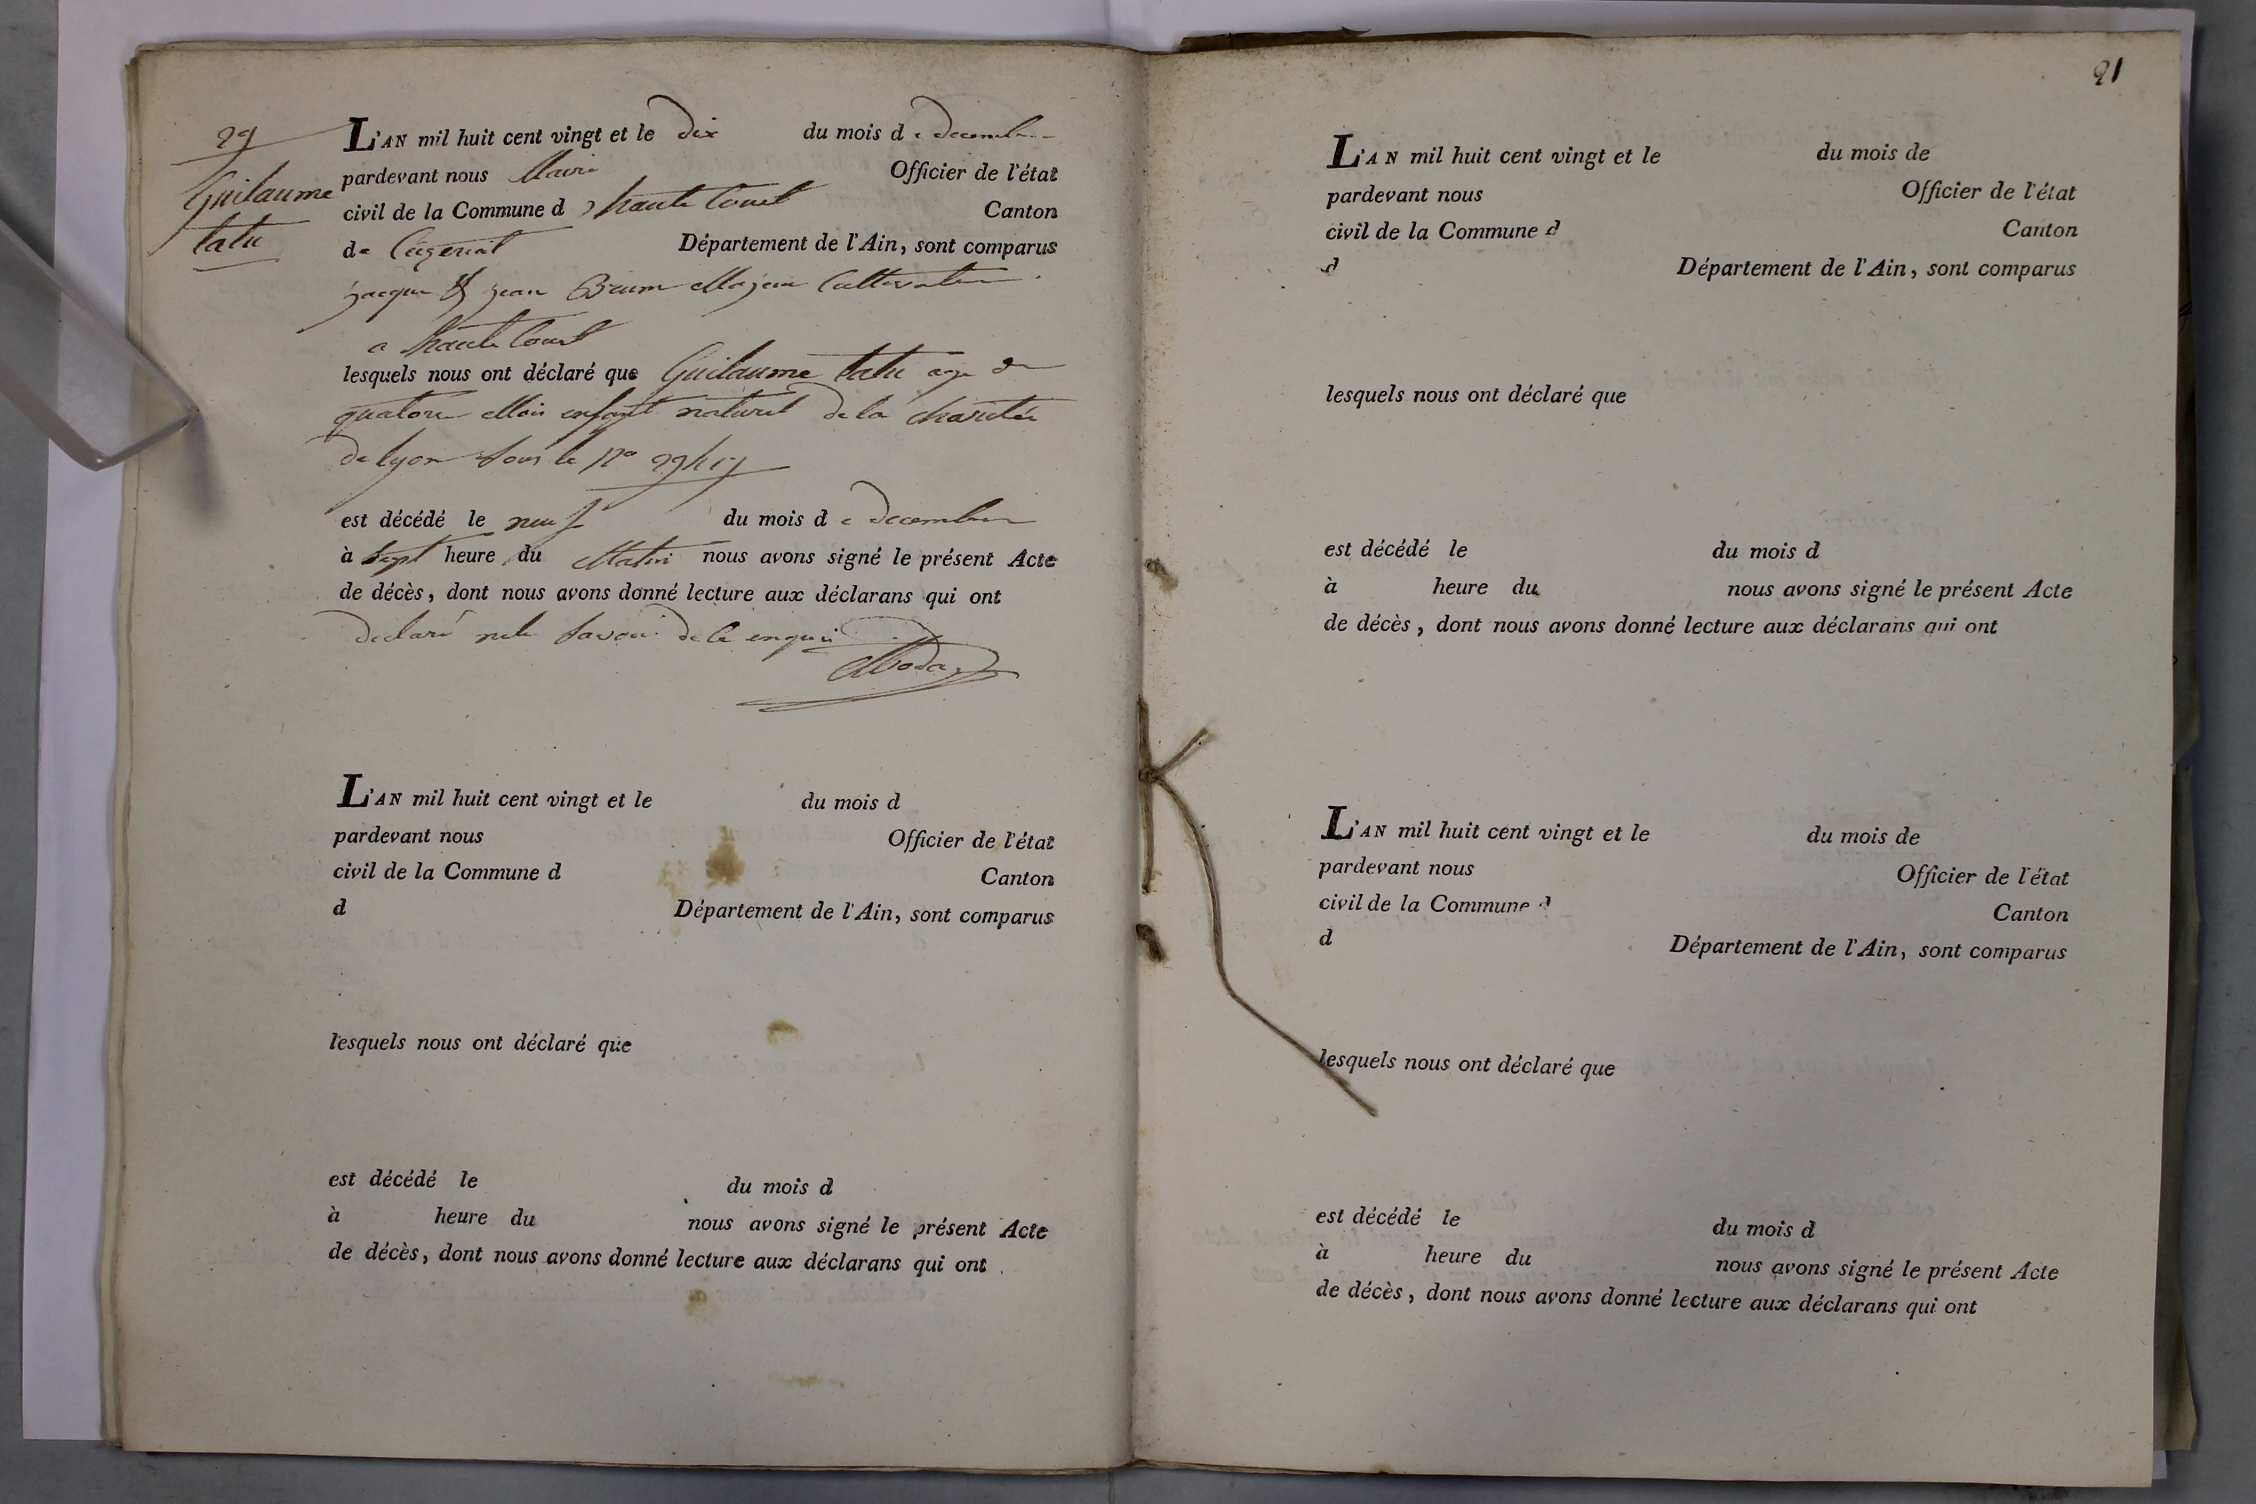 29
Guilaume
tatu
L'AN mil huit cent vingt et le dix du mois de decembre
pardevant nous Maire Officier de l'état
civil de la Commune d haute Court Canton
de Ceÿzeriat Département de l'Ain, sont comparus
jacque & jean Brun Majeur Cultivateur
a haute Court
lesquels nous ont déclaré que Guilaume tatu age de
quatorze Mois enfant naturel de la charitée
de lyon sous le No
est décédé le neuf du mois de decembre
à sept heure du Matin nous avons signé le présent Acte
de décès, dont nous avons donné lecture aux déclarans qui ont
declaré ne le savoir de ce enquis
L'AN mil huit cent vingt et le du mois d
pardevant nous Officier de l'état
civil de la Commune d Canton
d Département de l'Ain, sont comparus
lesquels nous ont déclaré que
est décédé le du mois d
à heure du nous avons signé le présent Acte
de décès, dont nous avons donné lecture aux déclarans qui ont
91
L'AN mil huit cent vingt et le du mois de
pardevant nous Officier de l'état
civil de la Commune d Canton
d Département de l'Ain, sont comparus
lesquels nous ont déclaré que
est décédé le du mois d
à heure du nous avons signé le présent Acte
de décès, dont nous avons donné lecture aux déclarans qui ont
L'AN mil huit cent vingt et le du mois de
pardevant nous Officier de l'état
civil de la Commune d Canton
d Département de l'Ain, sont comparus
lesquels nous ont déclaré que
est décédé le du mois d
à heure du nous avons signé le présent Acte
de décès, dont nous avons donné lecture aux déclarans qui ont